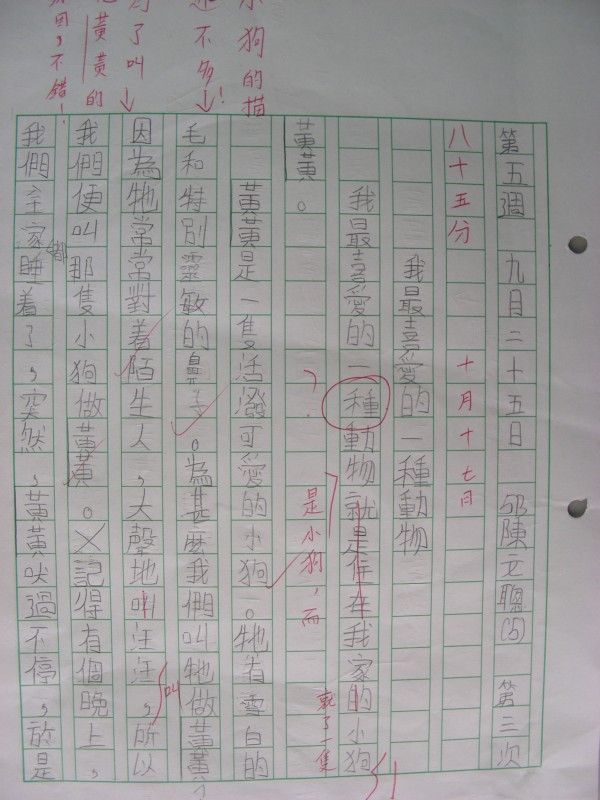 第五週 九月二十五日 邱陳元聰(5) 第三次
八十五分 十月十七日
我最喜愛的一種動物
我最喜愛的一種動物就是住在我家的小狗
是小狗,而
黃黃。
小狗的描
黃黃是一隻活潑可愛的小狗。牠有雪白的
不多!
毛和特別靈敏的鼻子。為甚麼我們叫牠做黃黃?
了叫
因為牠常常對着陌生人,大聲地叫汪汪,所以
叫
黃黃的
我們便叫那隻小狗做黃黃。記得有個晚上,
因,不錯!
我們全家都睡着了,突然,黃黃吠過不停,於是